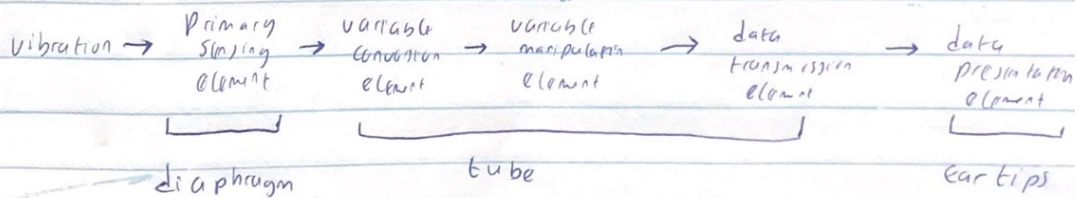 vibration → primary sensing element → variable conversion element → variable manipulation element → data transmission element → data presentation element
diaphragm tube ear tips